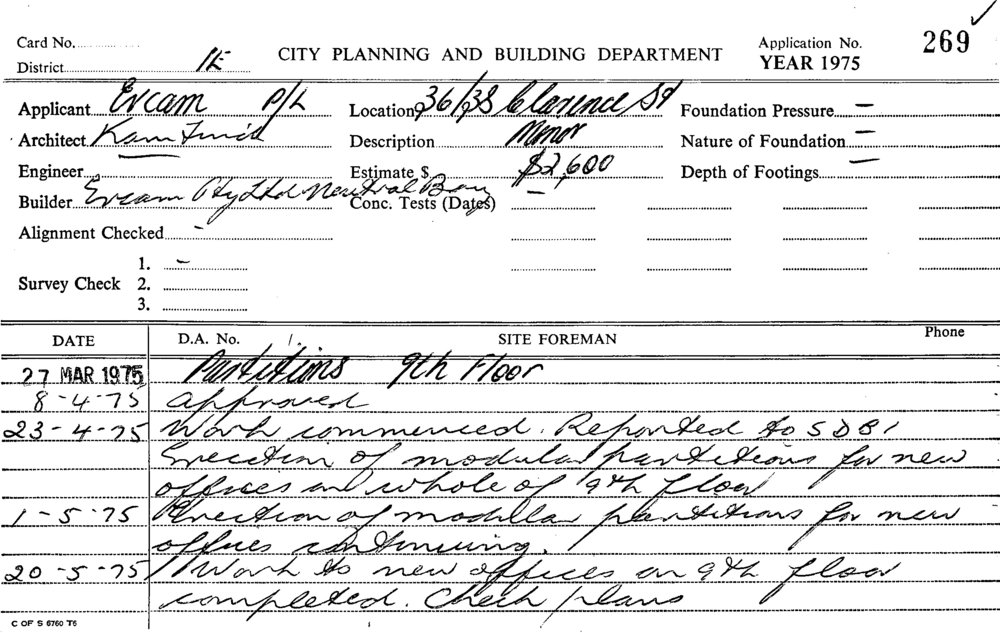 Card No.
District 1E
CITY PLANNING AND BUILDING DEPARTMENT
Application No. 269
YEAR 1975
Applicant Ercam P/L
Location 36/38 Clarence St
Foundation Pressure —
Architect
Description Minor
Nature of Foundation —
Engineer
Estimate $ $2,600
Depth of Footings —
Builder Ercam Pty Ltd Neutral Bay
Conc. Tests (Dates) —
Alignment Checked -
Survey Check
1. -
2.
3.
DATE D.A. No. SITE FOREMAN Phone
27 MAR 1975 Partitions 9th Floor
8-4-75 Approved
23-4-75 Work commenced. Reported to SDBI
Erection of modular partitions for new
offices on whole of 9th floor
1-5-75 Erection of modular partitions for new
offices continuing.
20-5-75 Work to new offices on 9th floor
completed. Check plans
C OF S 6760 T6